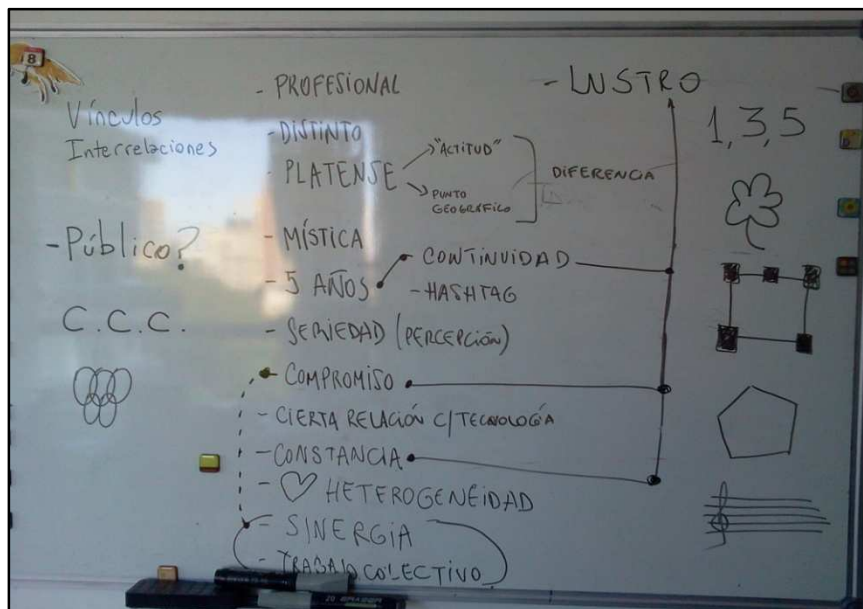 8
Vínculos
Interrelaciones
-Público?
C.C.C.
- PROFESIONAL
- DISTINTO
- PLATENSE
"ACTITUD"
PUNTO
GEOGRÁFICO
DIFERENCIA
- MÍSTICA
- 5 AÑOS
- CONTINUIDAD
- HASHTAG
- SERIEDAD (PERCEPCIÓN)
- COMPROMISO
- CIERTA RELACIÓN C/TECNOLOGÍA
- CONSTANCIA
- ♡ HETEROGENEIDAD
- SINERGIA
- TRABAJO COLECTIVO
- LUSTRO
1, 3, 5